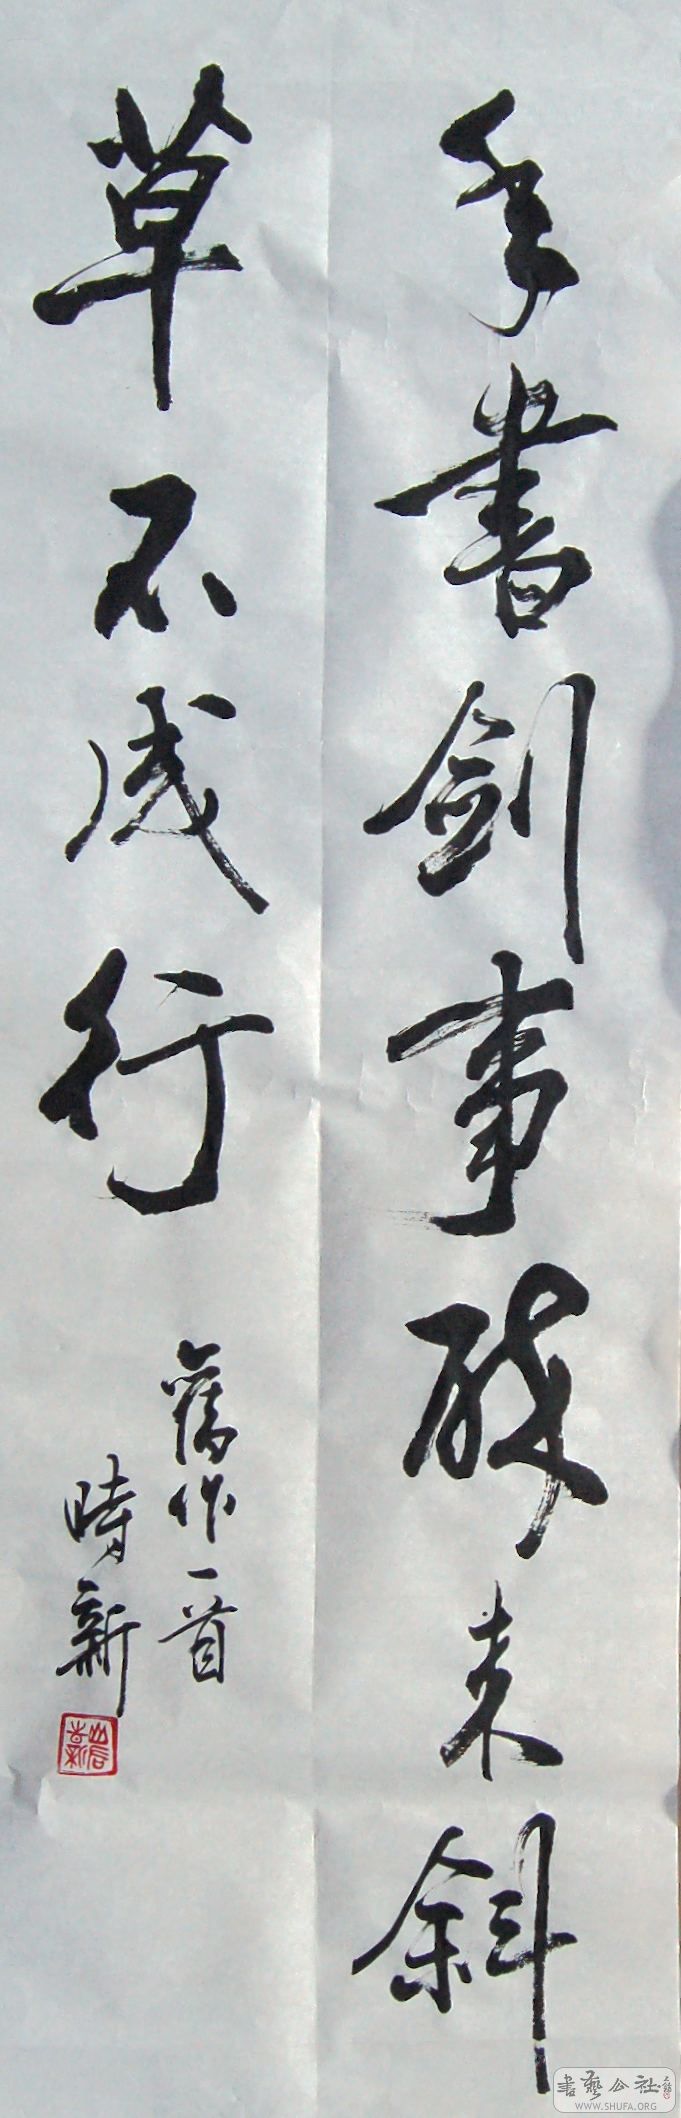 年書剑事醉来斜
草不成行
舊作一首
時新
書藝公社
WWW.SHUFA.ORG